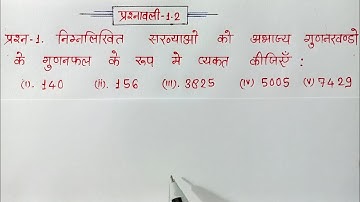 प्रश्नावली-1.2
प्रश्न-1. निम्नलिखित सख्याओ को अभाज्य गुणनखण्डो
के गुणनफल के रूप मे व्यक्त कीजिएँ :
(i). 140 (ii). 156 (iii). 3825 (iv) 5005 (v) 7429